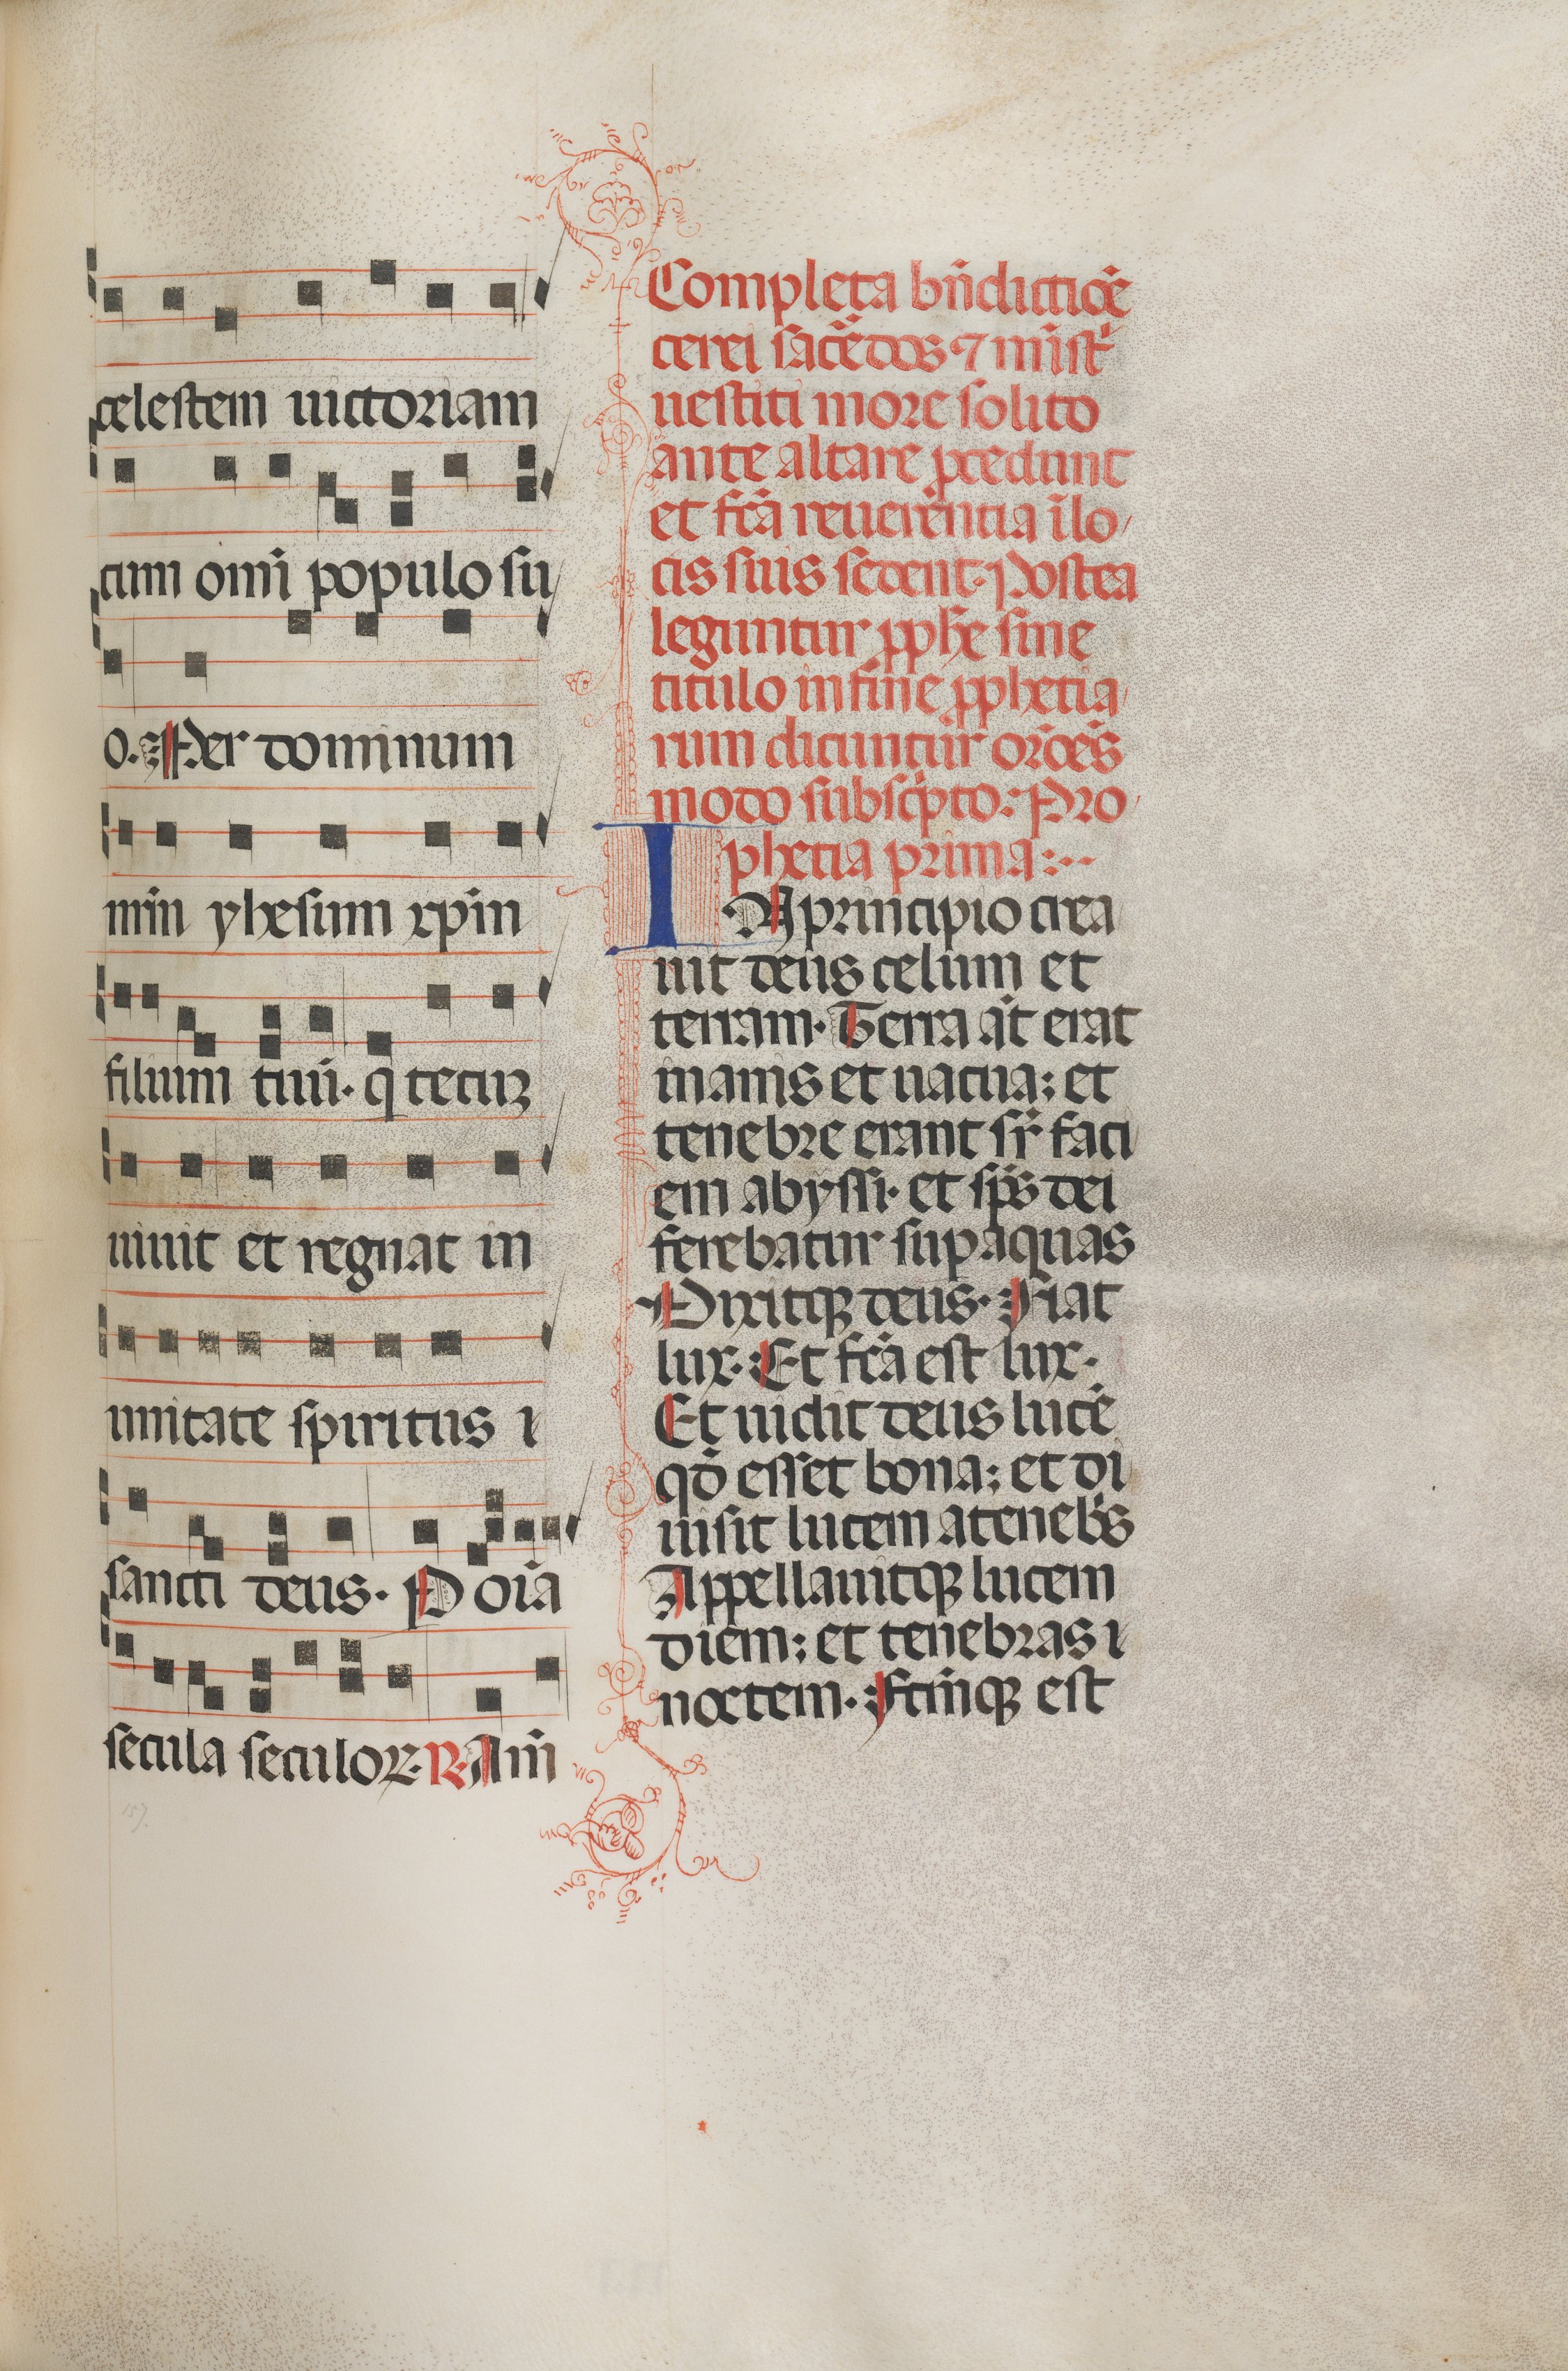 celestem uictoriam
cum omĩ populo su
o. Per dominum
nr̃m yhesum xp̃m
filium tuũ. q̃ tecuʒ
uiuit et regnat in
unitate spiritus ı
sancti deus. P oĩa
secula seculoꝝ. ℟. Am̃
Completa bñdictiõe
cerei sac̃edos ⁊ mĩst̃
uestiti more solito
ante altare ꝓcedunt
et fc̃a reuerẽntia ĩ lo
cis suis sedent. Postea
leguntur ꝓphẽ sine
titulo in fine ꝓphetia
rum dicuntur or̃oẽs
modo subscͥpto: Pro
phetia prima:··
IN principio crea
uit deus celum et
terram. Terra aũt erat
inanis et uacua; et
tenebre erant sr̃ faci
em abyssi. et sp̃s dei
ferebatur suꝑ aquas
Dixitqꝫ deus. Fiat
lux. Et fc̃a est lux.
Et uidit deus lucẽ
qđ esset bona; et di
uisit lucem a teneb̃s
Appellauitqꝫ lucem
diem; et tenebras ı
noctem. Fc̃mqꝫ est
157.